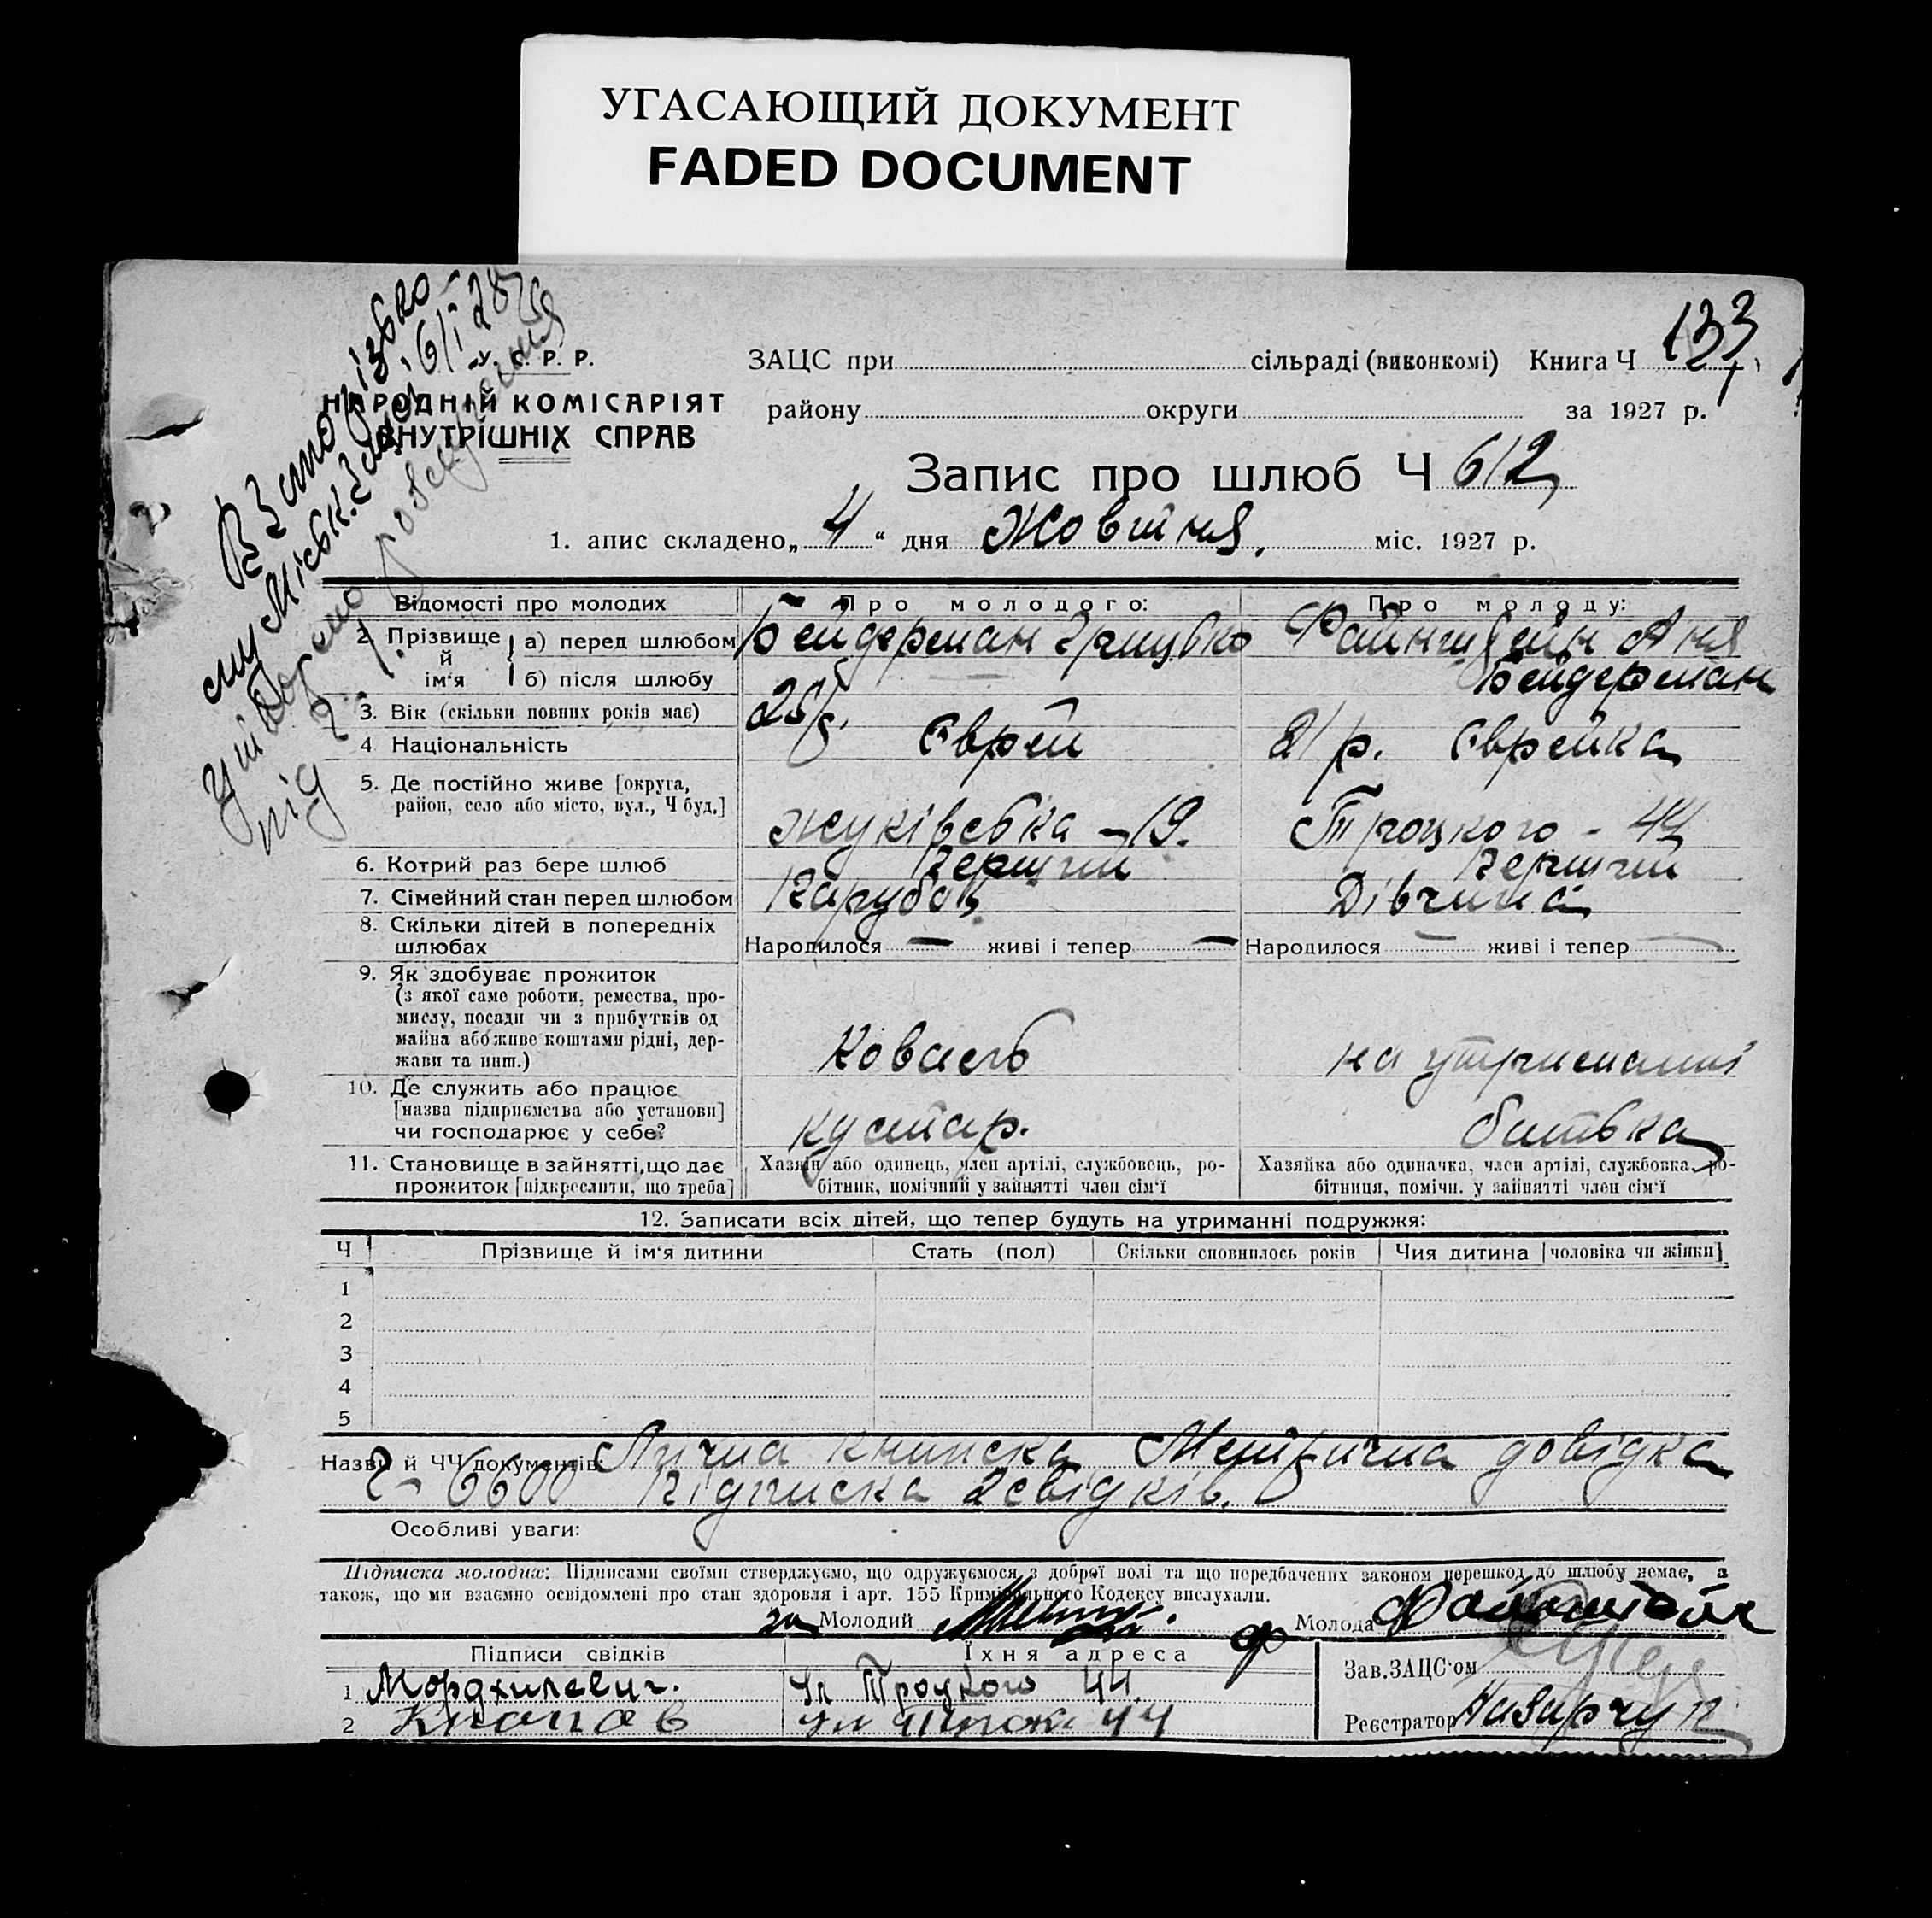 УГАСАЮЩИЙ ДОКУМЕНТ
FADED DOCUMENT
У. С. Р. Р.
НАРОДНІЙ КОМІСАРІЯТ
ВНУТРІШНІХ СПРАВ
ЗАЦС при сільраді (виконкомі) Книга Ч 133
району округи за 1927 р.
Запис про шлюб Ч 612
1. апис складено „4“ дня Жовтня міс. 1927 р.
Відомості про молодих Про молодого: Про молоду:
2. Прізвище й ім'я а) перед шлюбом Бейдерман Грицько Файнштейн Аня
б) після шлюбу Бейдерман
3. Вік (скільки повних років має)
4. Національність Єврей 21 р. Єврейка
5. Де постійно живе [округа,
район, село або місто, вул., Ч буд.] Жуківська - 19. Троцкого - 44
6. Котрий раз бере шлюб Перший Перший
7. Сімейний стан перед шлюбом Парубок Дівчина
8. Скільки дітей в попередніх
шлюбах Народилося — живі і тепер — Народилося — живі і тепер —
9. Як здобуває прожиток
(з якої саме роботи, ремества, про-
мислу, посади чи з прибутків од
майна або живе коштами рідні, дер-
жави та инш.) Коваль на утриманні
10. Де служить або працює
[назва підприємства або установи]
чи господарює у себе? кустар. батька
11. Становище в зайнятті, що дає Хазяїн або одинець, член артілі, службовець, ро- Хазяйка або одиначка, член артілі, службовка, ро-
прожиток [підкреслити, що треба] бітник, помічний у зайнятті член сім'ї бітниця, помічн. у зайнятті член сім'ї
12. Записати всіх дітей, що тепер будуть на утриманні подружжя:
Ч Прізвище й ім'я дитини Стать (пол) Скільки сповнилось років Чия дитина [чоловіка чи жінки]
1
2
3
4
5
Назви й ЧЧ документів: Лична книжка Метрична довідка
6600 Підписка 2 свідків.
Особливі уваги:
Підписка молодих: Підписами своїми стверджуємо, що одружуємося з доброї волі та що передбачених законом перешкод до шлюбу немає, а
також, що ми взаємно освідомлені про стан здоровля і арт. 155 Кримінального Кодексу вислухали.
за Молодий Молода Файнштейн
Підписи свідків Їхня адреса Зав. ЗАЦС'ом
1 Ул Троцкого 44
2 44 Реєстратор Назарчук